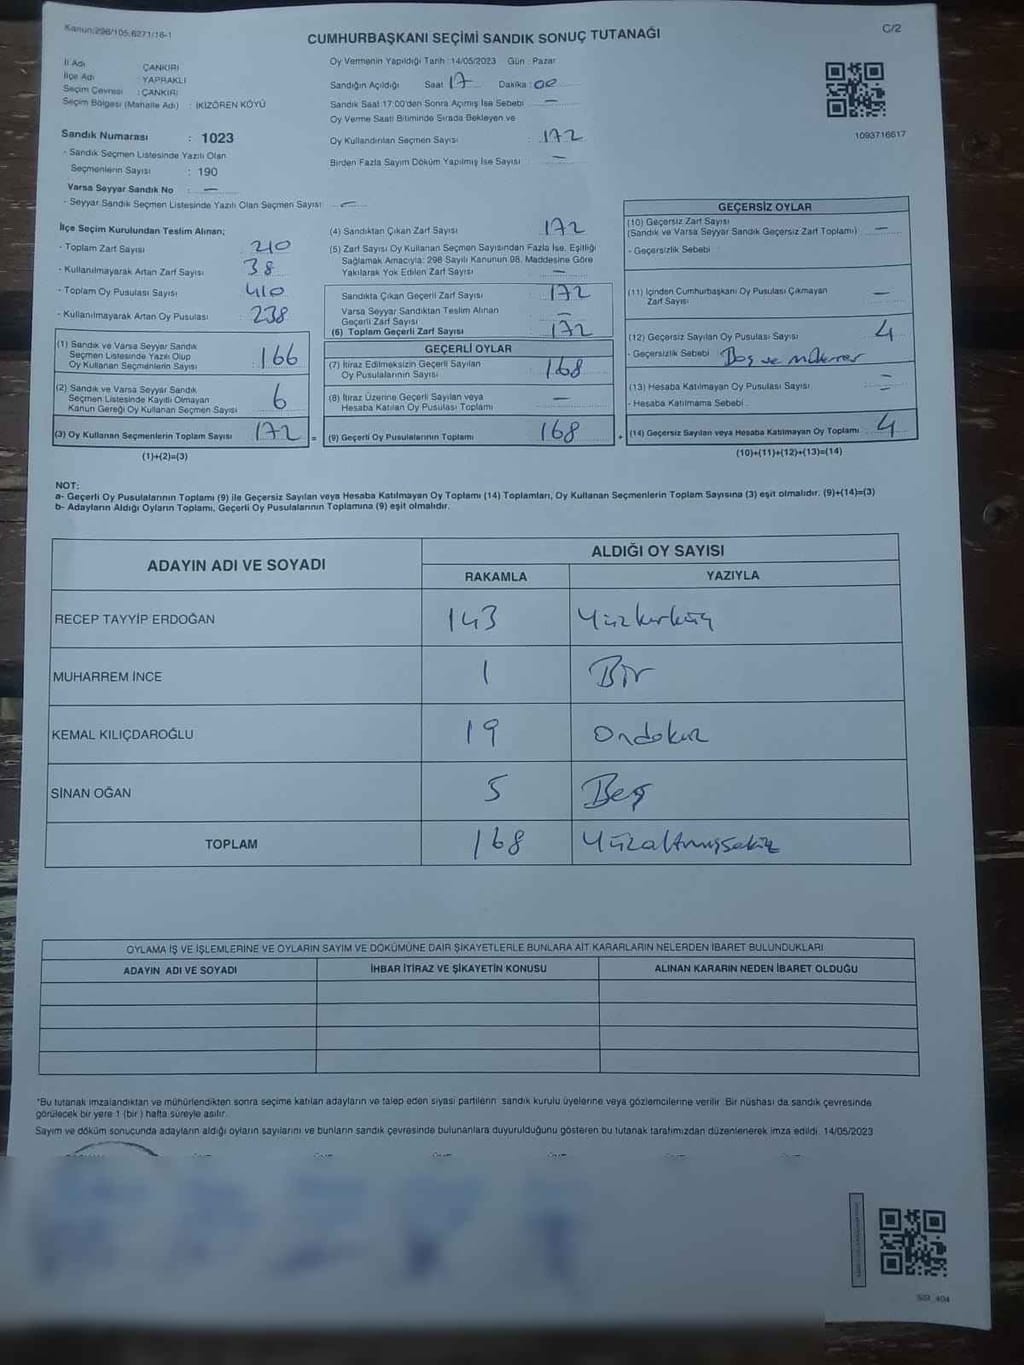 Kanun:298/105,6271/18-1
C/2
CUMHURBAŞKANI SEÇİMİ SANDIK SONUÇ TUTANAĞI
İl Adı ÇANKIRI
İlçe Adı YAPRAKLI
Seçim Çevresi : ÇANKIRI
Seçim Bölgesi (Mahalle Adı) : İKİZÖREN KÖYÜ
Oy Vermenin Yapıldığı Tarih : 14/05/2023 Gün : Pazar
Sandığın Açıldığı Saat 17 Dakika : 00
Sandık Saat 17:00'den Sonra Açılmış İse Sebebi —
Oy Verme Saati Bitiminde Sırada Bekleyen ve
Oy Kullandırılan Seçmen Sayısı : 172
Birden Fazla Sayım Döküm Yapılmış İse Sayısı —
1093716617
Sandık Numarası : 1023
- Sandık Seçmen Listesinde Yazılı Olan
Seçmenlerin Sayısı : 190
Varsa Seyyar Sandık No : —
- Seyyar Sandık Seçmen Listesinde Yazılı Olan Seçmen Sayısı —
İlçe Seçim Kurulundan Teslim Alınan;
- Toplam Zarf Sayısı 210
- Kullanılmayarak Artan Zarf Sayısı 38
- Toplam Oy Pusulası Sayısı 410
- Kullanılmayarak Artan Oy Pusulası 238
(1) Sandık ve Varsa Seyyar Sandık
Seçmen Listesinde Yazılı Olup
Oy Kullanan Seçmenlerin Sayısı 166
(2) Sandık ve Varsa Seyyar Sandık
Seçmen Listesinde Kayıtlı Olmayan
Kanun Gereği Oy Kullanan Seçmen Sayısı 6
(3) Oy Kullanan Seçmenlerin Toplam Sayısı 172 =
(1)+(2)=(3)
(4) Sandıktan Çıkan Zarf Sayısı 172
(5) Zarf Sayısı Oy Kullanan Seçmen Sayısından Fazla İse, Eşitliği
Sağlamak Amacıyla; 298 Sayılı Kanunun 98. Maddesine Göre
Yakılarak Yok Edilen Zarf Sayısı —
Sandıkta Çıkan Geçerli Zarf Sayısı 172
Varsa Seyyar Sandıktan Teslim Alınan
Geçerli Zarf Sayısı —
(6) Toplam Geçerli Zarf Sayısı 172
GEÇERLİ OYLAR
(7) İtiraz Edilmeksizin Geçerli Sayılan
Oy Pusulalarının Sayısı 168
(8) İtiraz Üzerine Geçerli Sayılan veya
Hesaba Katılan Oy Pusulası Toplamı —
(9) Geçerli Oy Pusulalarının Toplamı 168 +
GEÇERSİZ OYLAR
(10) Geçersiz Zarf Sayısı
(Sandık ve Varsa Seyyar Sandık Geçersiz Zarf Toplamı) —
- Geçersizlik Sebebi
(11) İçinden Cumhurbaşkanı Oy Pusulası Çıkmayan
Zarf Sayısı —
(12) Geçersiz Sayılan Oy Pusulası Sayısı 4
- Geçersizlik Sebebi Boş ve mükerrer
(13) Hesaba Katılmayan Oy Pusulası Sayısı —
- Hesaba Katılmama Sebebi
(14) Geçersiz Sayılan veya Hesaba Katılmayan Oy Toplamı 4
(10)+(11)+(12)+(13)=(14)
NOT:
a- Geçerli Oy Pusulalarının Toplamı (9) ile Geçersiz Sayılan veya Hesaba Katılmayan Oy Toplamı (14) Toplamları, Oy Kullanan Seçmenlerin Toplam Sayısına (3) eşit olmalıdır. (9)+(14)=(3)
b- Adayların Aldığı Oyların Toplamı, Geçerli Oy Pusulalarının Toplamına (9) eşit olmalıdır.
ADAYIN ADI VE SOYADI ALDIĞI OY SAYISI
RAKAMLA YAZIYLA
RECEP TAYYİP ERDOĞAN 143 Yüzkırküç
MUHARREM İNCE 1 Bir
KEMAL KILIÇDAROĞLU 19 Ondokuz
SİNAN OĞAN 5 Beş
TOPLAM 168 Yüzaltmışsekiz
OYLAMA İŞ VE İŞLEMLERİNE VE OYLARIN SAYIM VE DÖKÜMÜNE DAİR ŞİKAYETLERLE BUNLARA AİT KARARLARIN NELERDEN İBARET BULUNDUKLARI
ADAYIN ADI VE SOYADI İHBAR İTİRAZ VE ŞİKAYETİN KONUSU ALINAN KARARIN NEDEN İBARET OLDUĞU
*Bu tutanak imzalandıktan ve mühürlendikten sonra seçime katılan adayların ve talep eden siyasi partilerin sandık kurulu üyelerine veya gözlemcilerine verilir. Bir nüshası da sandık çevresinde
görülecek bir yere 1 (bir) hafta süreyle asılır.
Sayım ve döküm sonucunda adayların aldığı oyların sayılarını ve bunların sandık çevresinde bulunanlara duyurulduğunu gösteren bu tutanak tarafımızdan düzenlenerek imza edildi. 14/05/2023